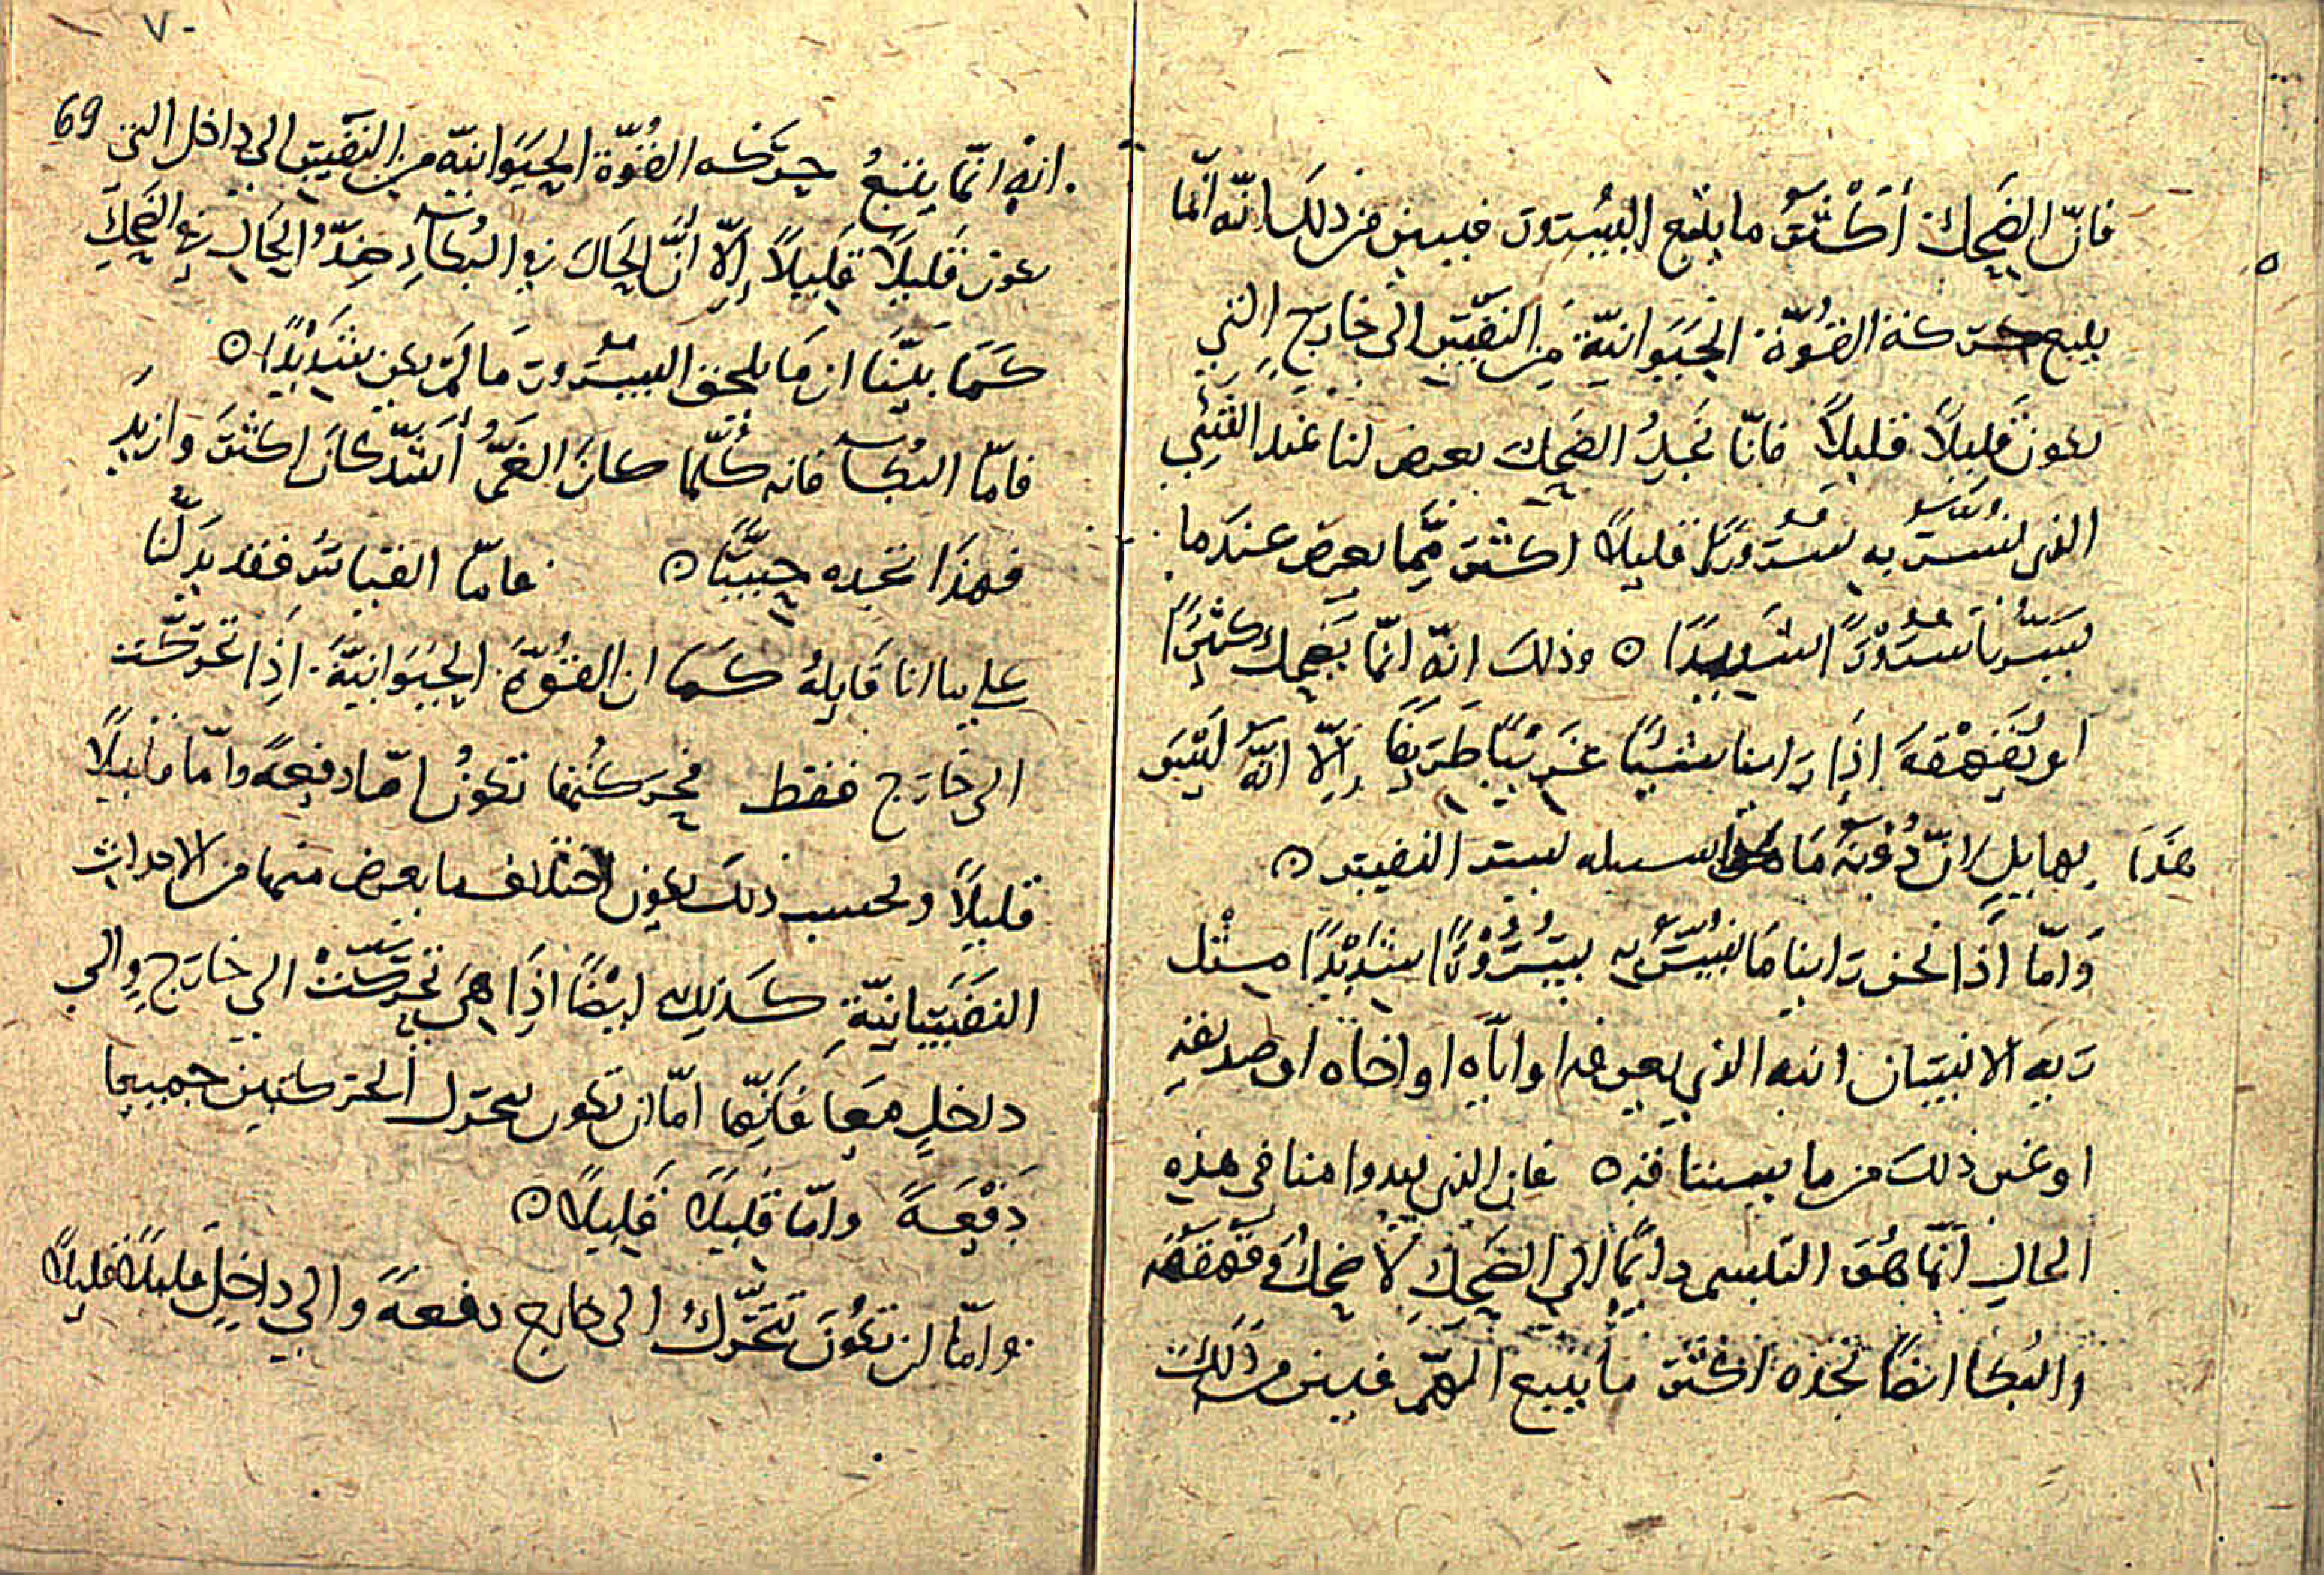 فانّ الضَحِك أكثَر ما يتبع السُرور فبين من ذلك انّه انّما
يتبع حركة القُوّة الحَيَوانيّة من النفس الى خارج التي
تكون قَليلًا قليلًا فانّا نَجِدُ الضَحِك يعرض لنا عند الشَئِ
الذى نُسَرّ به سُرورًا قليلًا اكثر مِمّا يعرض عندما
يَسُرّنا سُرُوْرًا شديدًا ه وذلك انّه انّما نَضحِك كثيرًا
او نُقَهْقه اذا رَاينا شَيئًا غَريْبًا طَريفًا إلّا انّه ليْسَ
هذا بهايلٍ انّ رُؤيَة ما هذا سبيله يسر النفس ه
وَامّا اذا نحن رَاينا ما نُسَرّ به سُرُوْرًا شَدِيْدًا مثْل
رَيَه الانسان ابنه الذي يعرفه او اَباه او اخاه او صديقه
او غير ذلك من ما يسرنا قربه فان الذى يبدوا منا فى هذه
الحال انّما هُوَ التبسم دائمًا الي الضَحِكِ لا ضحِكٌ وقهقهَة
والبُكا ايضًا نجده اكثر ما يتبع الهَمّ فبين من ذلك
٧٠
69
انه انّما يتبعُ حركه القُوّة الحيَوَانيّه من النَفْس الى داخل التى
تكون قَليلًا قَليلًا إلّا أنّ الحَال في البُكاءِ ضِدُّ الحَالِ في الضَحِكِ
كَمَا بَيّنا ان مَا يلحق السرور مَا لَمْ يكن شَدِيْدًا ه
فامّا البُكا فانه كُلّما كانَ الغَمُّ أشدّ كانَ اكثرَ وازيد
فهذا نجِده حِسًّا ه فامّا القياسُ فقد يدلّنا
علي ما انا قَايلهُ كَما ان القُوّةَ الحيَوَانيّةَ اذا تحَرّكَت
الى خَارَج فقط فحركَتُها تكونُ امّا دفعةً وامّا قليلًا
قليلًا وبحسب ذلك يكون اختلاف ما يعرض منها من الاحداث
النفسَانيّةِ كَذلِك ايضًا اذا هَى تحَرّكَتْ الي خارَجٍ والي
داخلٍ مَعا فَانّها امّا ان تكون تتحرّك الحركتين جميعا
دَفْعَةً وامّا قليلًا قَليلًا ه
وامّا ان تكونَ تتحَرّكُ الى خارج دفعةً والي داخِلٍ قليلًا قليلًا